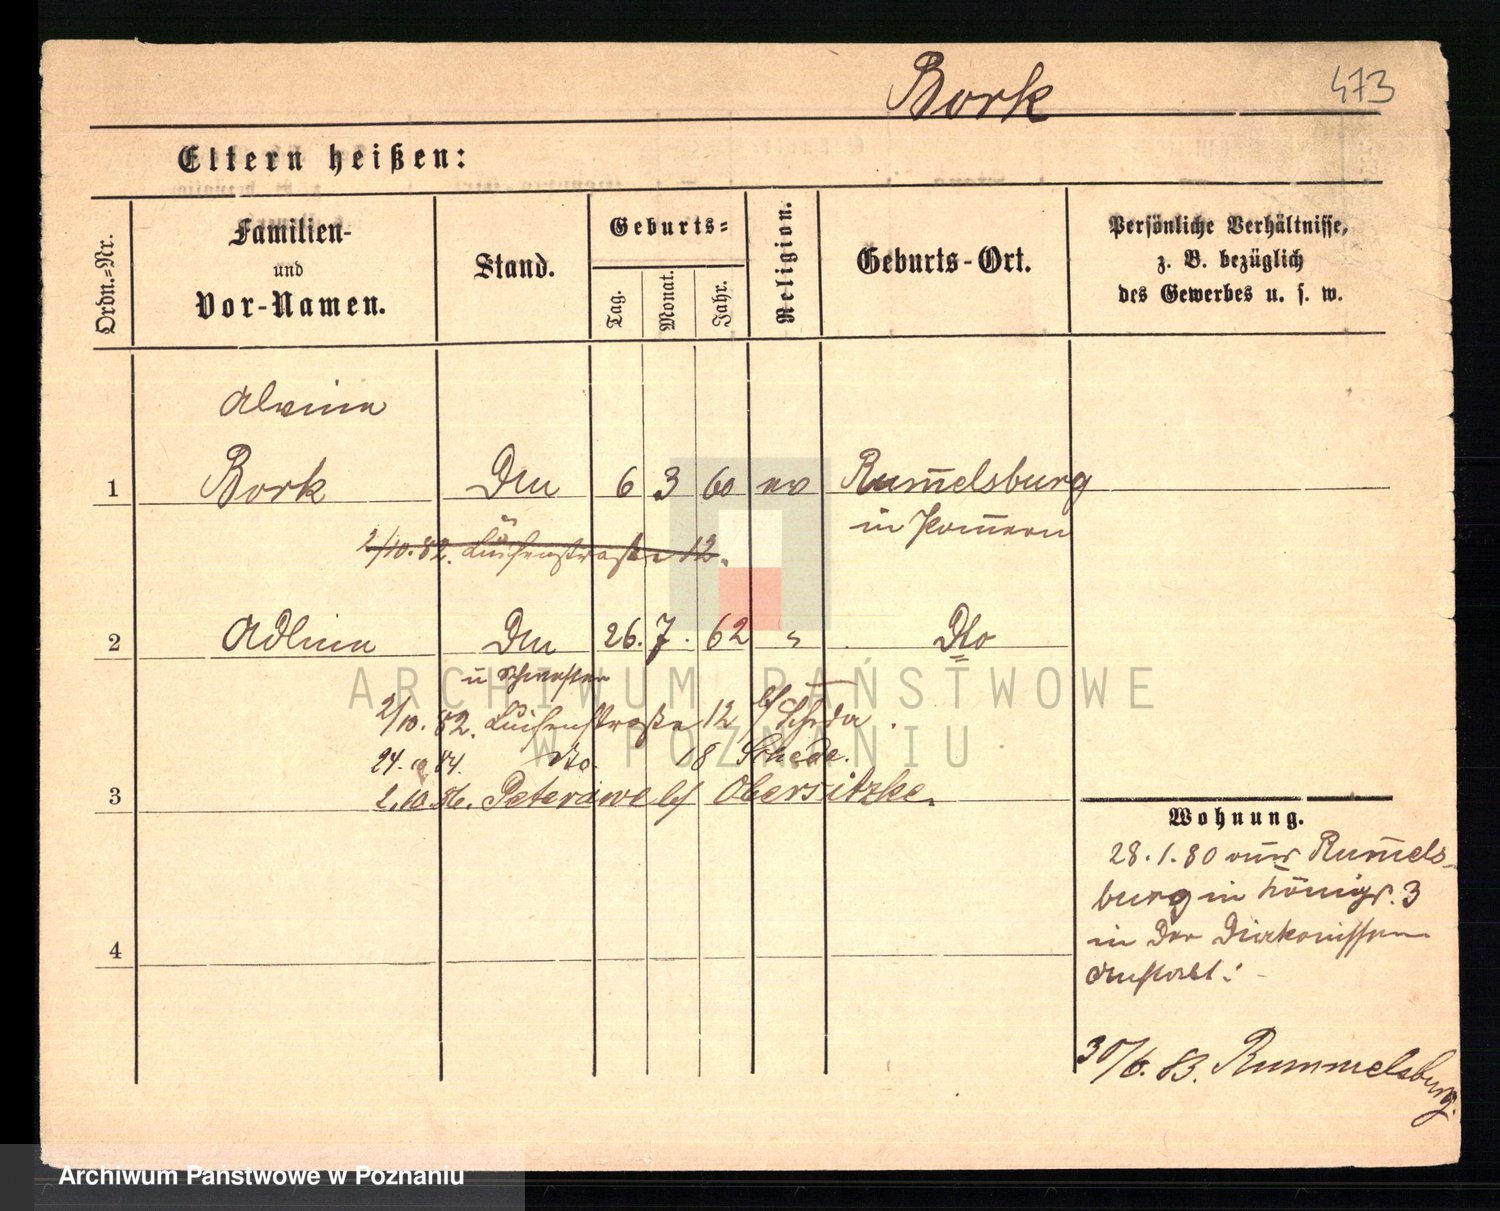 Bork
473
Eltern heißen:
Ordn.=Nr.
Familien-
und
Vor-Namen.
Stand.
Geburts=
Tag.
Monat.
Jahr.
Religion.
Geburts-Ort.
Persönliche Verhältnisse,
z. B. bezüglich
des Gewerbes u. s. w.
Alwine
1 Bork 6 3 60 ev Rum̅elsburg
in Pom̅ern
2/10. 82. 12.
2 26. 7. 62 " Dto
u Schwester
2/10. 82. 12 b/ Scheda
24. 84. dto 18 Schede.
3 2. 10. 86. b/ Obersitzke.
Wohnung.
28. 1. 80 aus Rum̅els-
burg in Königs. 3
in der Diakonissen
anstalt.
4
30/6. 83. Rummelsburg.
ARCHIWUM PAŃSTWOWE
W POZNANIU
Archiwum Państwowe w Poznaniu